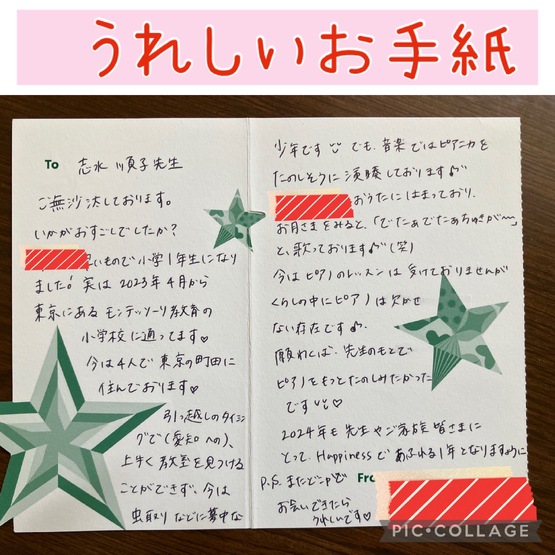 うれしいお手紙
To 志水 順子先生
ご無沙汰しております。
いかがおすごしでしたか?
早いもので小学1年生になり
ました! 実は2023年4月から
東京にあるモンテッソーリ教育の
小学校に通ってます♡
今は4人で東京の町田に
住んでおります♡
引っ越しのタイミン
グで(愛知への)、
上手く教室を見つける
ことができず、今は
虫取りなどに夢中な
少年です でも、音楽ではピアニカを
たのしそうに演奏しております♪
おうたにはまっており、
お月さまをみると、「でたぁでたぁちゅきが〜〜」
と、歌っております♪(笑)
今はピアノのレッスンは受けておりませんが
くらしの中にピアノは欠かせ
ない存在です♪
願わくば、先生のもとで
ピアノをもっとたのしみたかった
です♡
2024年も先生やご家族皆さまに
とって、Happinessであふれる1年となりますように
P.S. またどこかで
お会いできたら
うれしいです♡
From
PIC•COLLAGE